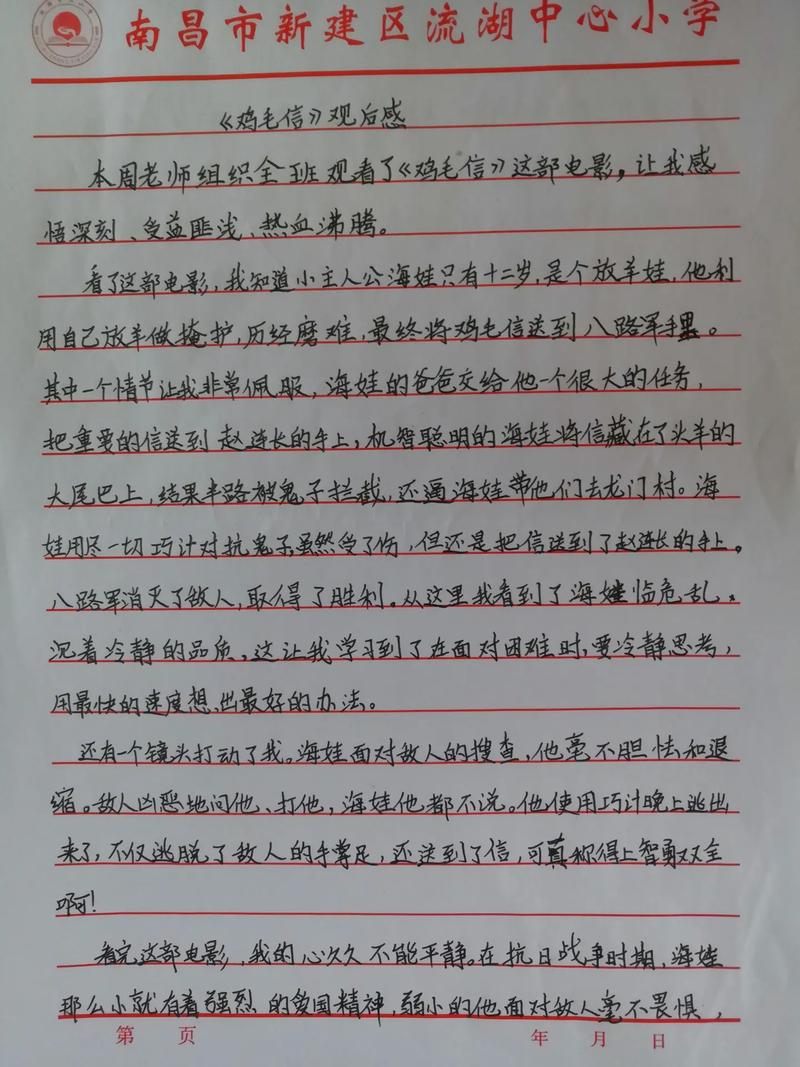 南昌市新建区流湖中心小学
《鸡毛信》观后感
本周老师组织全班观看了《鸡毛信》这部电影，让我感
悟深刻、受益匪浅、热血沸腾。
看了这部电影，我知道小主人公海娃只有十二岁，是个放羊娃，他利
用自己放羊做掩护，历经磨难，最终将鸡毛信送到八路军手里。
其中一个情节让我非常佩服，海娃的爸爸交给他一个很大的任务，
把重要的信送到赵连长的手上，机智聪明的海娃将信藏在了头羊的
大尾巴上，结果半路被鬼子拦截，还逼海娃带他们去龙门村。海
娃用尽一切巧计对抗鬼子，虽然受了伤，但还是把信送到了赵连长的手上。
八路军消灭了敌人，取得了胜利。从这里我看到了海娃临危乱、
沉着冷静的品质，这让我学习到了在面对困难时，要冷静思考，
用最快的速度想出最好的办法。
还有一个镜头打动了我。海娃面对敌人的搜查，他毫不胆怯和退
缩。敌人凶恶地问他、打他，海娃他都不说。他使用巧计晚上逃出
来了，不仅逃脱了敌人的手掌足，还送到了信，可真称得上智勇双全
啊！
看完这部电影，我的心久久不能平静。在抗日战争时期，海娃
那么小就有着强烈的爱国精神，弱小的他面对敌人毫不畏惧，
第 页 年 月 日